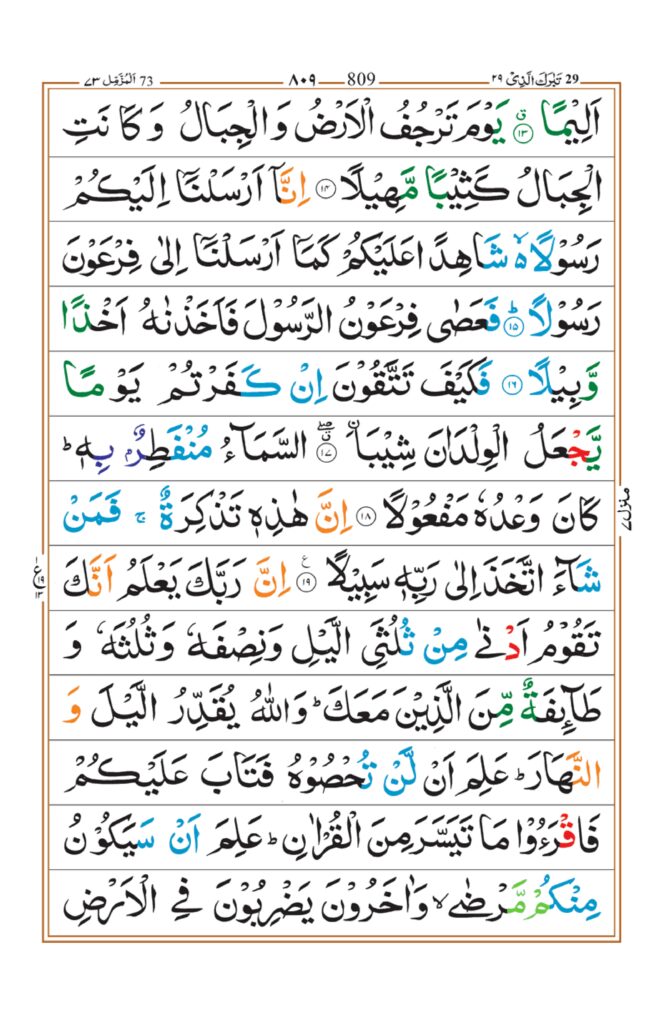 29 تَبٰرَكَ الَّذِیْ ۲۹ 809 ۸۰۹ 73 اَلْمُزَّمِّل ۷۳
اَلِیْمًا ۱۳ۗ یَوْمَ تَرْجُفُ الْاَرْضُ وَ الْجِبَالُ وَ كَانَتِ
الْجِبَالُ كَثِیْبًا مَّهِیْلًا ۱۴ اِنَّاۤ اَرْسَلْنَاۤ اِلَیْكُمْ
رَسُوْلًا ۙ۬ شَاهِدًا عَلَیْكُمْ كَمَاۤ اَرْسَلْنَاۤ اِلٰى فِرْعَوْنَ
رَسُوْلًا ۱۵ؕ فَعَصٰى فِرْعَوْنُ الرَّسُوْلَ فَاَخَذْنٰهُ اَخْذًا
وَّبِیْلًا ۱۶ فَكَیْفَ تَتَّقُوْنَ اِنْ كَفَرْتُمْ یَوْمًا
یَّجْعَلُ الْوِلْدَانَ شِیْبَا ۱۷ۖۗ السَّمَآءُ مُنْفَطِرٌۢ بِهٖ ؕ
كَانَ وَعْدُهٗ مَفْعُوْلًا ۱۸ اِنَّ هٰذِهٖ تَذْكِرَةٌ ۚ فَمَنْ
شَآءَ اتَّخَذَ اِلٰى رَبِّهٖ سَبِیْلًا ۱۹ اِنَّ رَبَّكَ یَعْلَمُ اَنَّكَ
تَقُوْمُ اَدْنٰى مِنْ ثُلُثَیِ الَّیْلِ وَنِصْفَهٗ وَثُلُثَهٗ وَ
طَآىِٕفَةٌ مِّنَ الَّذِیْنَ مَعَكَ ؕ وَاللّٰهُ یُقَدِّرُ الَّیْلَ وَ
النَّهَارَ ؕ عَلِمَ اَنْ لَّنْ تُحْصُوْهُ فَتَابَ عَلَیْكُمْ
فَاقْرَءُوْا مَا تَیَسَّرَ مِنَ الْقُرْاٰنِ ؕ عَلِمَ اَنْ سَیَكُوْنُ
مِنْكُمْ مَّرْضٰى ۙ وَاٰخَرُوْنَ یَضْرِبُوْنَ فِی الْاَرْضِ
منزل ۷
ع ۱۹ ۱۳